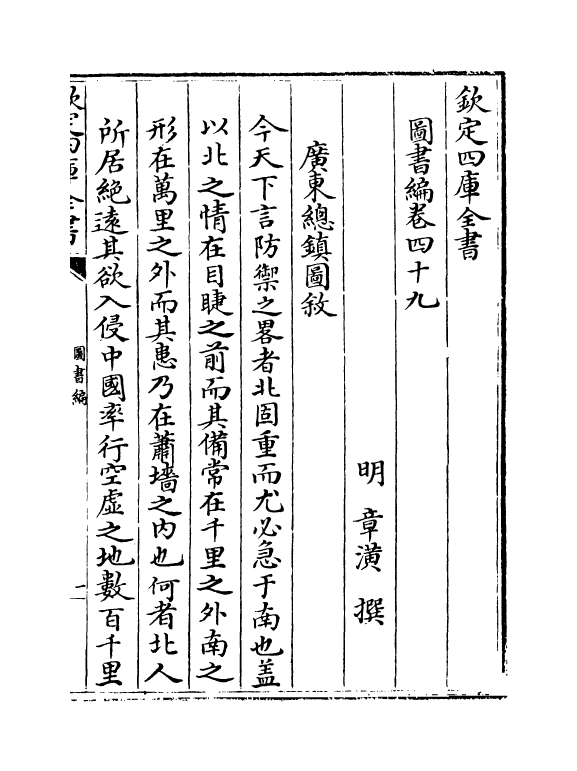 欽定四庫全書
圖書編卷四十九
明 章潢 撰
廣東總鎮圖敘
今天下言防禦之畧者北固重而尤必急于南也盖
以北之情在目睫之前而其備常在千里之外南之
形在萬里之外而其患乃在蕭墻之内也何者北人
所居絶遠其欲入侵中國率行空虛之地數百千里
欽定四庫全書
圖書編
一